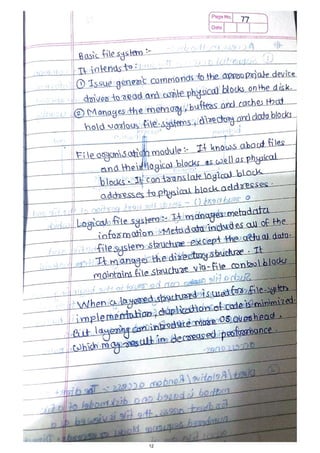 Page No. 77
Date
Basic file system :-
It intends to :-
① Issue generic commands to the appropriate device
driver to read and write physical blocks on the disk.
② Manages the memory, buffers and caches that
hold various file-systems, directory and data blocks
File organisation module :- It knows about files
and their logical blocks as well as physical
blocks. It can translate logical block
addresses to physical block addresses.
Logical file system :- It manages metadata
information. Metadata includes all of the
file system structure except the actual data.
It manage the directory structure. It
maintain file structure via-file control blocks
When a layered structured is used for file-system
implementation, duplication of code is minimized
But layering can introduce more OS overhead,
which may result in decreased performance.
12